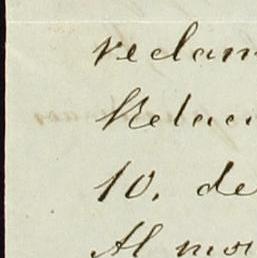 reclam
Relaci
10. de
Al mo